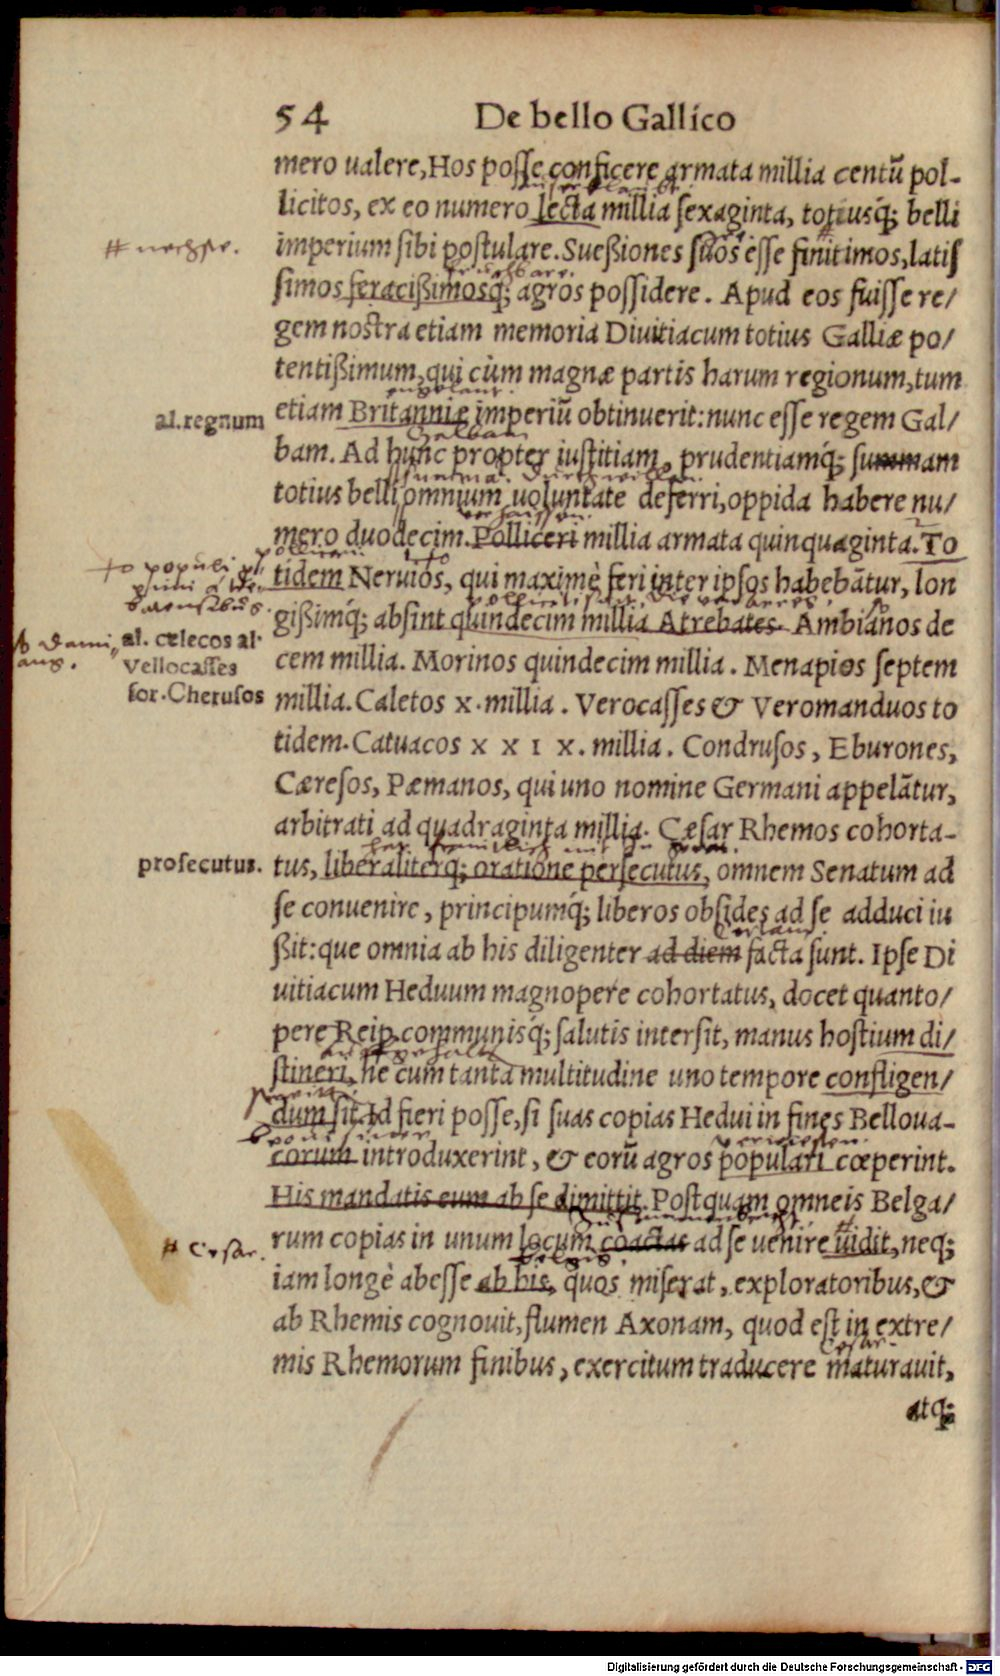 54 De bello Gallico
mero ualere, Hos posse conficere armata millia centũ pol-
licitos, ex eo numero lecta millia sexaginta, totiusq́; belli
# nechste.
imperium sibi postulare. Sueßiones suos esse finitimos, latis
simos feracißimosq́; agros possidere. Apud eos fuisse re/
gem nostra etiam memoria Diuitiacum totius Galliæ po/
tentißimum, qui cùm magnæ partis harum regionum, tum
engelant.
al. regnum
etiam Britanniæ imperiũ obtinuerit: nunc esse regem Gal/
Galbam
bam. Ad hunc propter iustitiam, prudentiamq́; summam
totius belli omnium uoluntate deferri, oppida habere nu/
mero duodecim. Polliceri millia armata quinquaginta. To
tidem Neruios, qui maximè feri inter ipsos habebãtur, lon
gißimq́; absint quindecim millia Atrebates. Ambianos de
al. celecos al.
Vellocasses
for. Cherusos
cem millia. Morinos quindecim millia. Menapios septem
millia. Caletos x. millia. Verocasses & Veromanduos to
tidem. Catuacos x x i x. millia. Condrusos, Eburones,
Cæresos, Pæmanos, qui uno nomine Germani appelãtur,
arbitrati ad quadraginta millia. Cæsar Rhemos cohorta-
prosecutus.
tus, liberaliterq́; oratione persecutus, omnem Senatum ad
se conuenire, principumq́; liberos obsides ad se adduci iu
ßit: que omnia ab his diligenter ad diem facta sunt. Ipse Di
uitiacum Heduum magnopere cohortatus, docet quanto/
pere Reip. communisq́; salutis intersit, manus hostium di/
stineri, ne cum tanta multitudine uno tempore confligen/
dum sit. Id fieri posse, si suas copias Hedui in fines Belloua-
corum introduxerint, & eorũ agros populari cœperint.
His mandatis eum ab se dimittit. Postquam omneis Belga/
# Cesar.
rum copias in unum locum coactas ad se uenire uidit, neq;
belgis
iam longè abesse ab his, quos miserat, exploratoribus, &
ab Rhemis cognouit, flumen Axonam, quod est in extre/
Cesar
mis Rhemorum finibus, exercitum traducere maturauit,
atq;
Digitalisierung gefördert durch die Deutsche Forschungsgemeinschaft - DFG